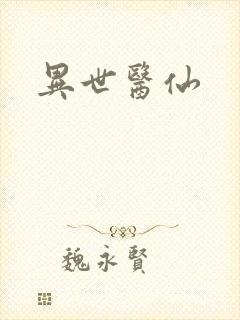 異世醫仙
魏永賢